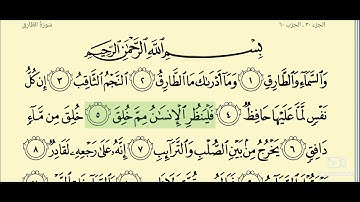 الجزء ٣٠ - الحزب ٦٠ سورة الطارق
بِسْمِ ٱللَّهِ ٱلرَّحْمَٰنِ ٱلرَّحِيمِ
وَٱلسَّمَآءِ وَٱلطَّارِقِ ١ وَمَآ أَدْرَىٰكَ مَا ٱلطَّارِقُ ٢ ٱلنَّجْمُ ٱلثَّاقِبُ ٣ إِن كُلُّ
نَفْسٍ لَّمَّا عَلَيْهَا حَافِظٌ ٤ فَلْيَنظُرِ ٱلْإِنسَٰنُ مِمَّ خُلِقَ ٥ خُلِقَ مِن مَّآءٍ
دَافِقٍ ٦ يَخْرُجُ مِنۢ بَيْنِ ٱلصُّلْبِ وَٱلتَّرَآئِبِ ٧ إِنَّهُۥ عَلَىٰ رَجْعِهِۦ لَقَادِرٌ ٨